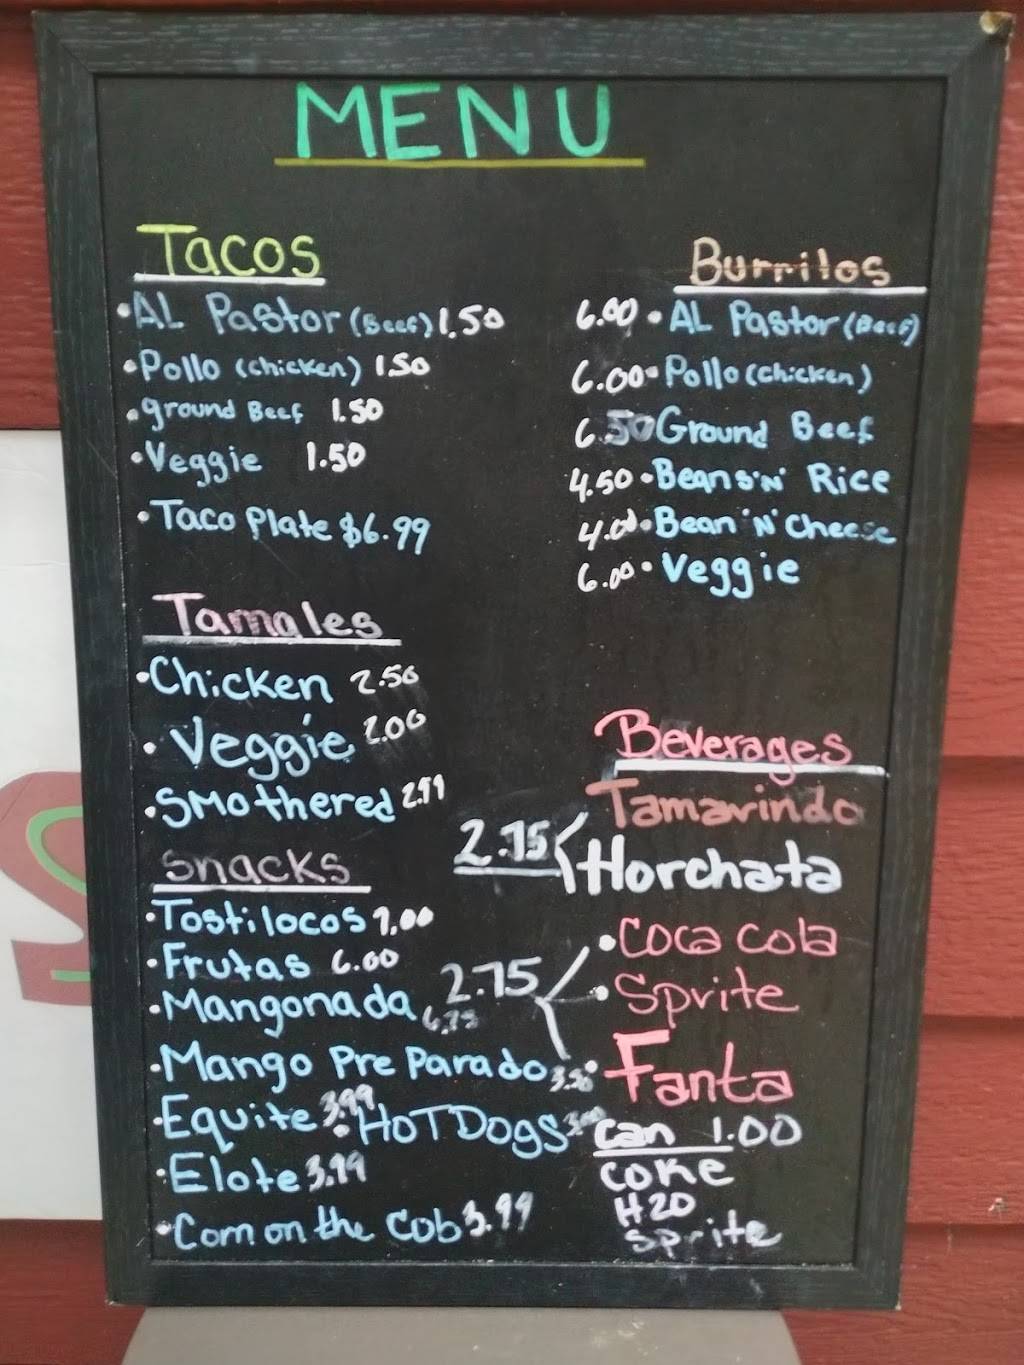 MENU
Tacos
• AL Pastor (Beef) 1.50
• Pollo (chicken) 1.50
• ground Beef 1.50
• Veggie 1.50
• Taco Plate $6.99
Burritos
6.00 • AL Pastor (Beef)
6.00 • Pollo (chicken)
6.50 Ground Beef
4.50 • Beans 'N' Rice
4.00 • Bean 'N' Cheese
6.00 • Veggie
Tamales
• Chicken 2.50
• Veggie 2.00
• SMothered 2.99
Snacks
• Tostilocos 7.00
• Frutas 6.00
• Mangonada 6.75
• Mango Pre Parado 3.50
• Equite 3.99 • HOT DOgS 3.00
• Elote 3.99
• Corn on the Cob 3.99
Beverages
Tamarindo
2.75 Horchata
• Coca cola
2.75 • Sprite
• Fanta
can 1.00
coke
H20
sprite